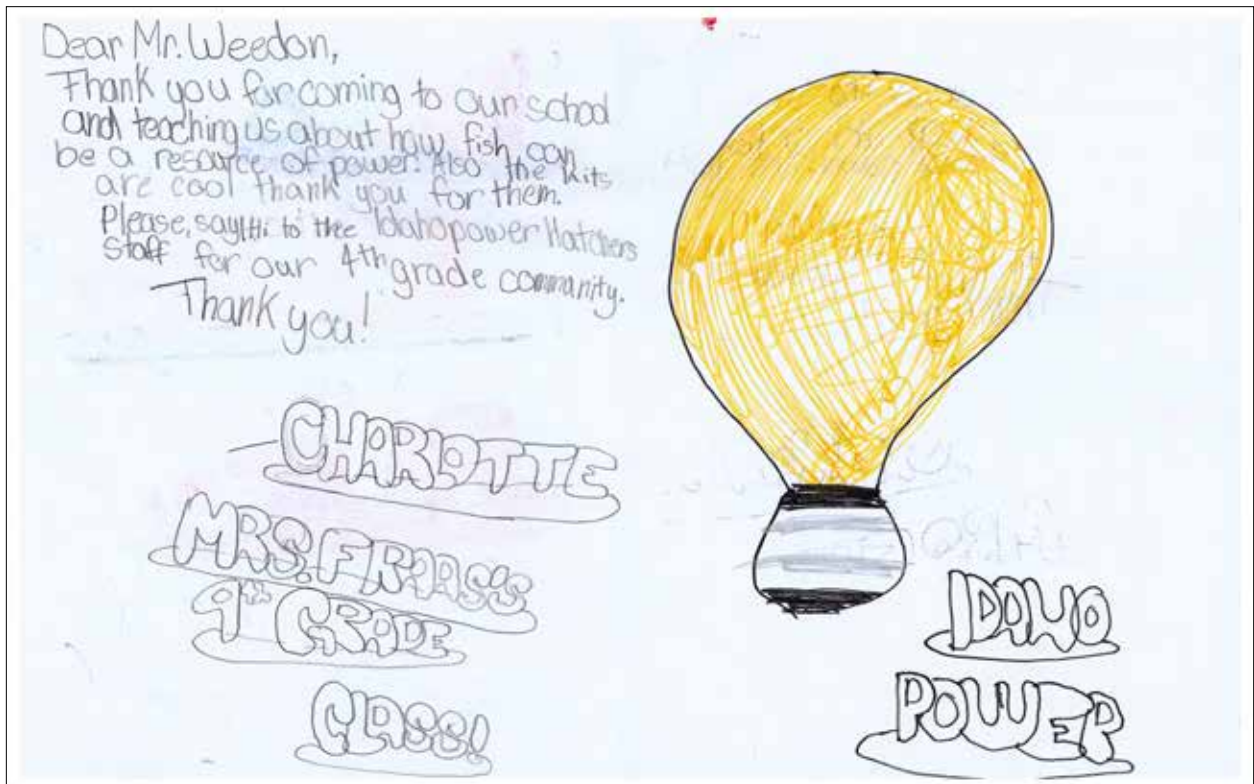 Dear Mr. Weedon,
Thank you for coming to our school
and teaching us about how fish can
be a resource of power. Also the kits
are cool thank you for them.
Please, say Hi to thee Idahopower Hatchers
staff for our 4th grade community.
Thank you!
CHARLOTTE
MRS. FRAAS'S
4th GRADE
CLASS!
IDAHO
POWER